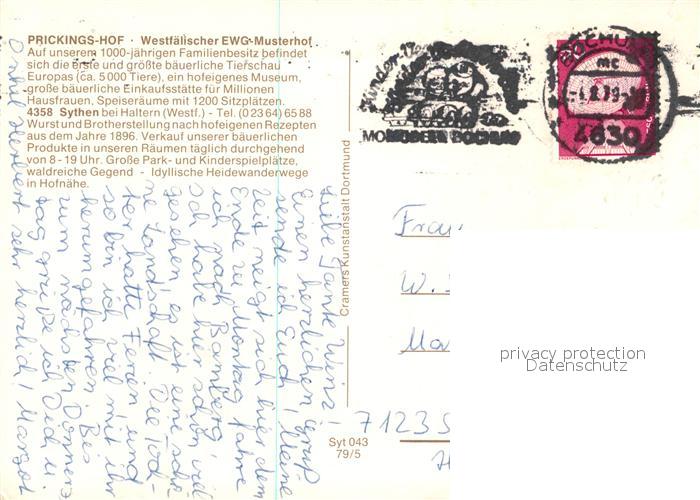 PRICKINGS-HOF · Westfälischer EWG-Musterhof
Auf unserem 1000-jährigen Familienbesitz befindet
sich die erste und größte bäuerliche Tierschau
Europas (ca. 5000 Tiere), ein hofeigenes Museum,
große bäuerliche Einkaufsstätte für Millionen
Hausfrauen. Speiseräume mit 1200 Sitzplätzen.
4358 Sythen bei Haltern (Westf.) - Tel. (02364) 6588
Wurst und Brotherstellung nach hofeigenen Rezepten
aus dem Jahre 1896. Verkauf unserer bäuerlichen
Produkte in unseren Räumen täglich durchgehend
von 8-19 Uhr. Große Park- und Kinderspielplätze,
waldreiche Gegend - Idyllische Heidewanderwege
in Hofnähe.
Liebe Tante Weinz!
Einen herzlichen Gruß
sende ich Euch! Meine
Zeit neigt sich hier dem
Ende zu. Montag fahre
ich nach Bamberg!
Ich habe hier schon viel
gesehen, es ist eine schö-
ne Landschaft. Die Toch-
ter hatte Ferien und
so bin ich viel mit ihr
herumgefahren. Bis
zum nächsten Donners-
tag grüße ich Dich u.
Onkel Herbert sehr herzlich! Margot
Cramers Kunstanstalt Dortmund
Syt 043
79/5
BOCHUM
mc
4630
BOCHUM
Frau
W.
Ma
7123 S
privacy protection
Datenschutz